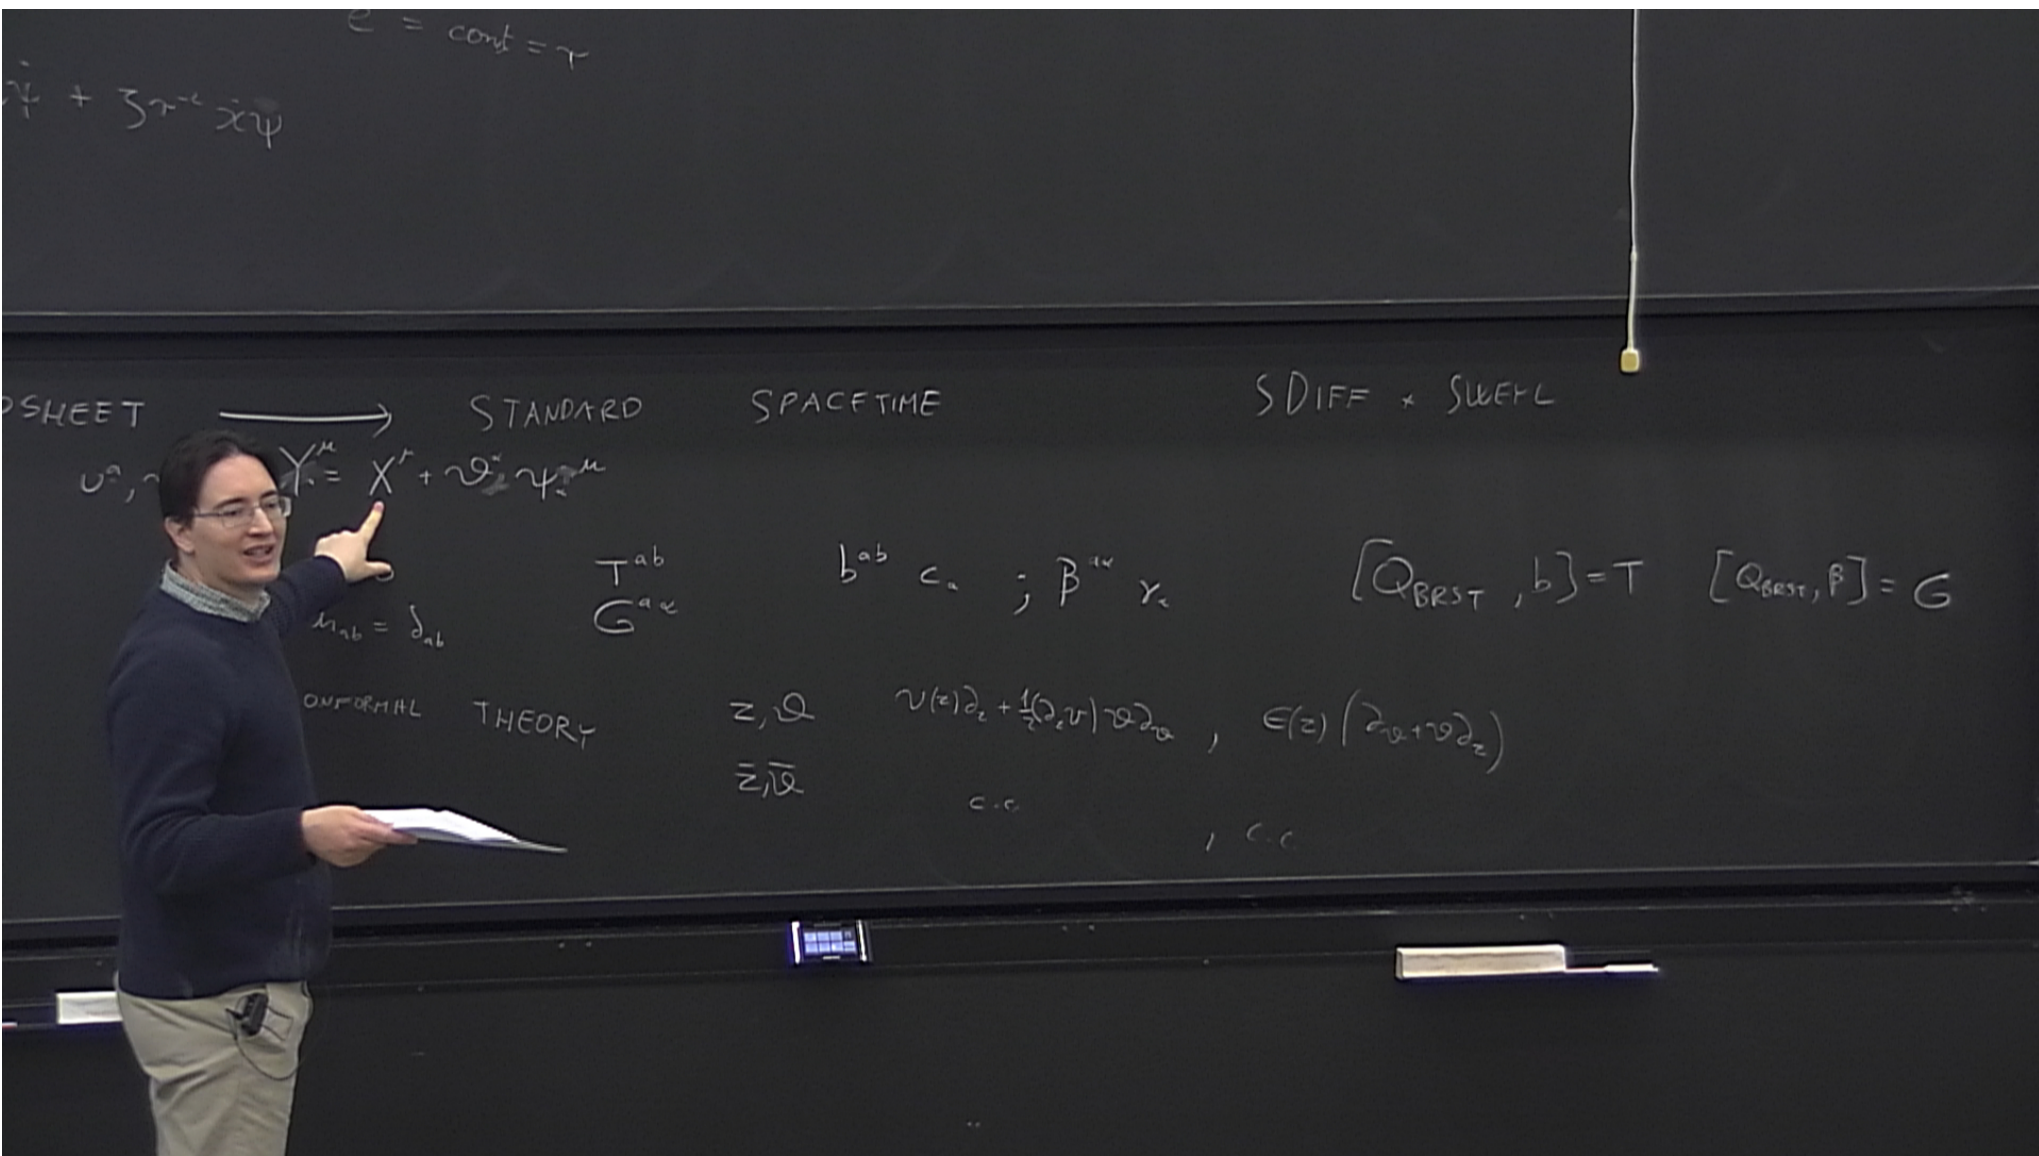 e = const = τ
ψ̇ + ζ τ⁻¹ ẋψ
DSHEET ⟶ STANDARD SPACETIME SDIFF × SWEYL
υᵃ, Y^μ = X^μ + ϑ^α ψ_α^μ
T^{ab} b^{ab} c_a ; β^{aα} γ_α [Q_BRST , b] = T [Q_BRST, β] = G
G^{aα}
h_{ab} = δ_{ab}
ONFORMAL THEORY z, ϑ v(z)∂_z + ½(∂_z v) ϑ∂_ϑ , ϵ(z) (∂_ϑ + ϑ∂_z)
z̄, ϑ̄ c.c
, c.c